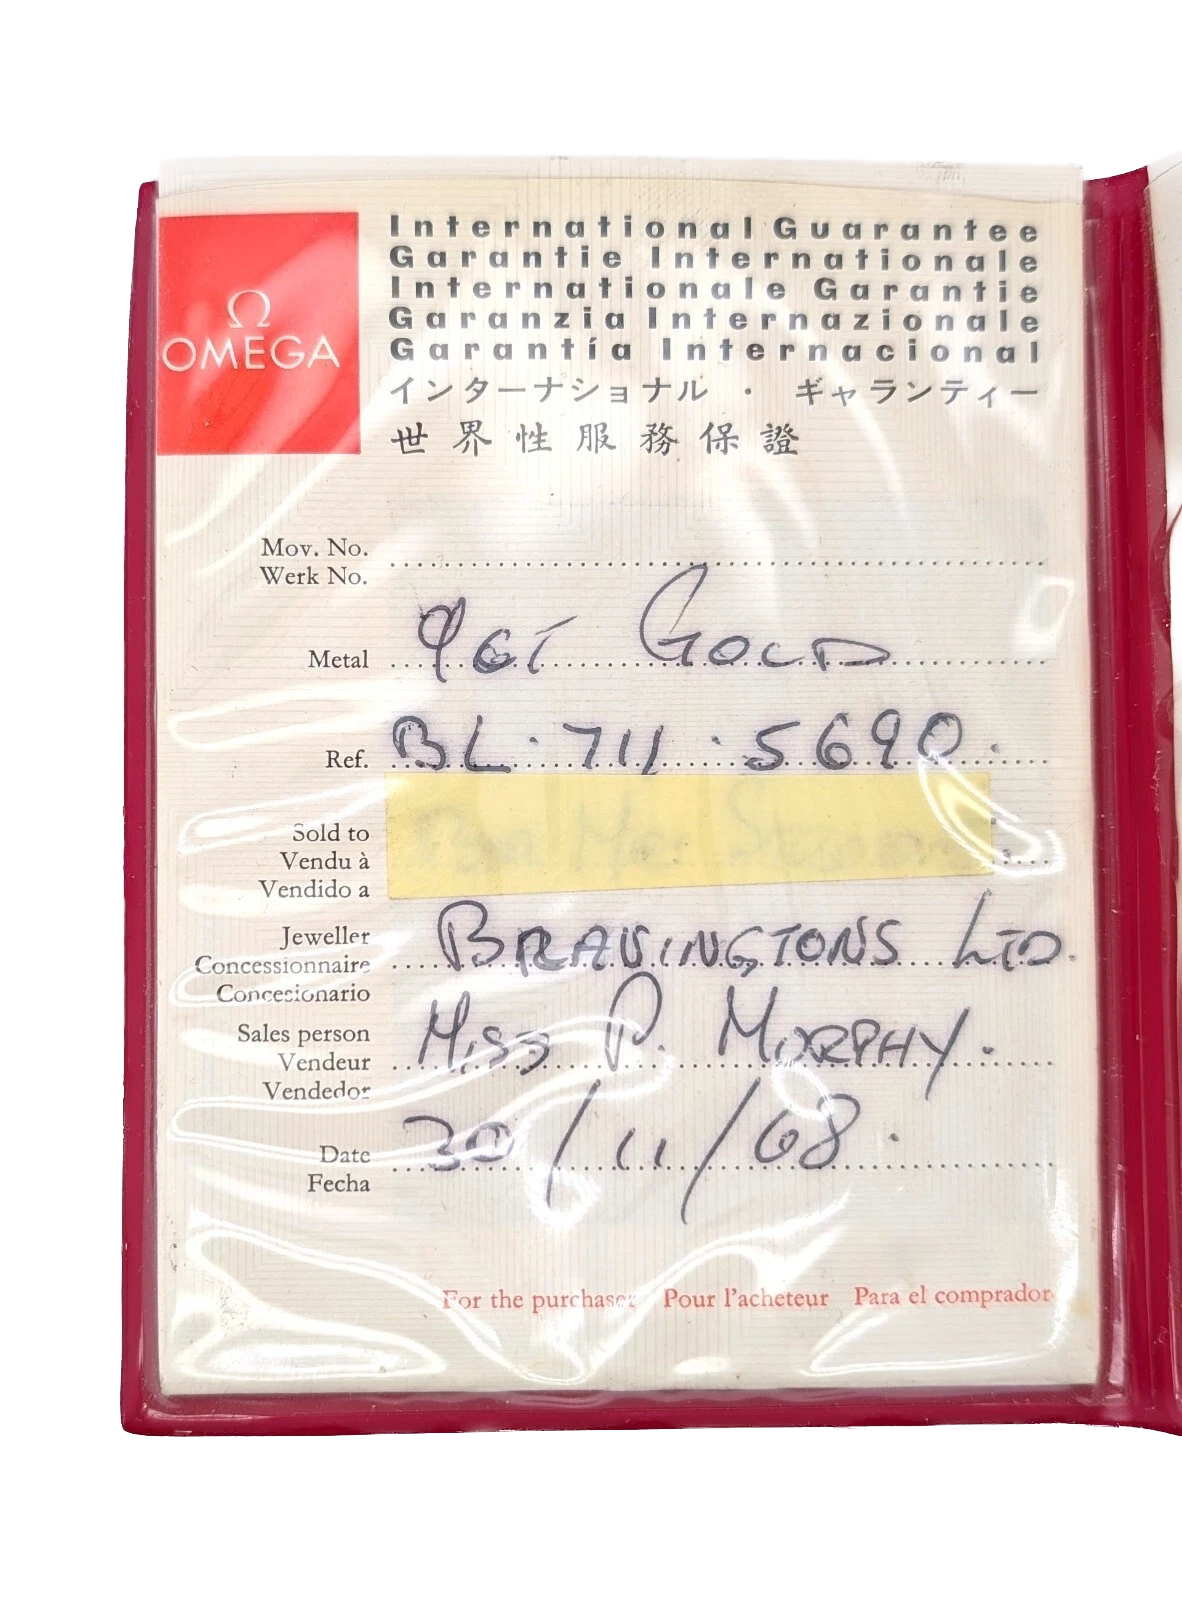 Ω
OMEGA
International Guarantee
Garantie Internationale
Internationale Garantie
Garanzia Internazionale
Garantía Internacional
インターナショナル ・ ギャランティー
世界性服務保證
Mov. No.
Werk No.
Metal 9CT GOLD
Ref. BL. 711 . 5690.
Sold to
Vendu à
Vendido a
Jeweller
Concessionnaire BRAVINGTONS LTD.
Concesionario
Sales person
Vendeur MISS P. MURPHY.
Vendedor
Date 30/11/68.
Fecha
For the purchaser Pour l'acheteur Para el comprador